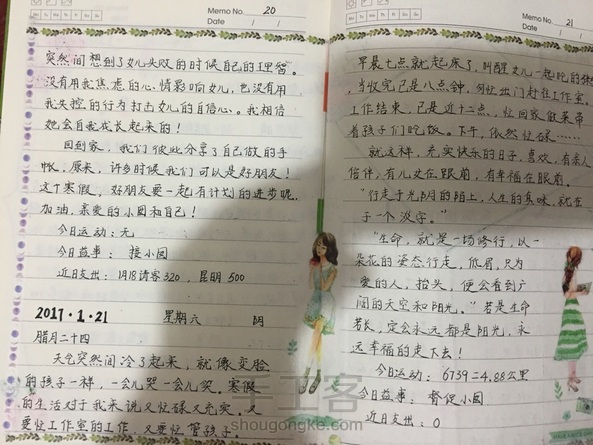 Memo No. 20
Mo Tu We Th Fr Sa Su
Date / /
突然间想到了女儿失败的时候自己的理智。
没有用我焦虑的心情影响女儿,也没有用
我失控的行为打击女儿的自信心。我相信
她会自我成长起来的!
回到家,我们彼此分享了自己做的手
帐,原来,许多时候我们可以是好朋友!
这个寒假,好朋友要一起有计划的进步呢,
加油,亲爱的小园和自己!
今日运动:无
今日益事:接小园
近日支出:1月18请客320,昆明500
2017·1·21 星期六 阴
腊月二十四
天气突然间冷了起来,就像变脸
的孩子一样,一会儿哭一会儿笑。寒假
的生活对于我来说又忙碌又充实,又
要忙工作室的工作,又要忙管孩子。
Memo No. 21
Mo Tu We Th Fr Sa Su
Date / /
早晨七点就起床了,叫醒女儿一起吃的饭,
当收完已是八点钟,匆忙出门赶往工作室。
工作结束,已是近十二点,忙回家做菜带
着孩子们吃饭。下午,依然忙碌……
就这样,充实快乐的日子,喜欢,有亲人
陪伴,有儿女在跟前,有幸福在眼前。
"行走于光阴的陌上,人生的真味,就在
于一个淡字。"
"生命,就是一场修行,以一
朵花的姿态行走,低眉,只为
爱的人,抬头,便会看到广
阔的天空和阳光。"若是生命
若长,定会永远都是阳光,永
远幸福的走下去!
今日运动:6739=4.88公里
今日益事:督促小园
近日支出:0
手工客
shougongke.com